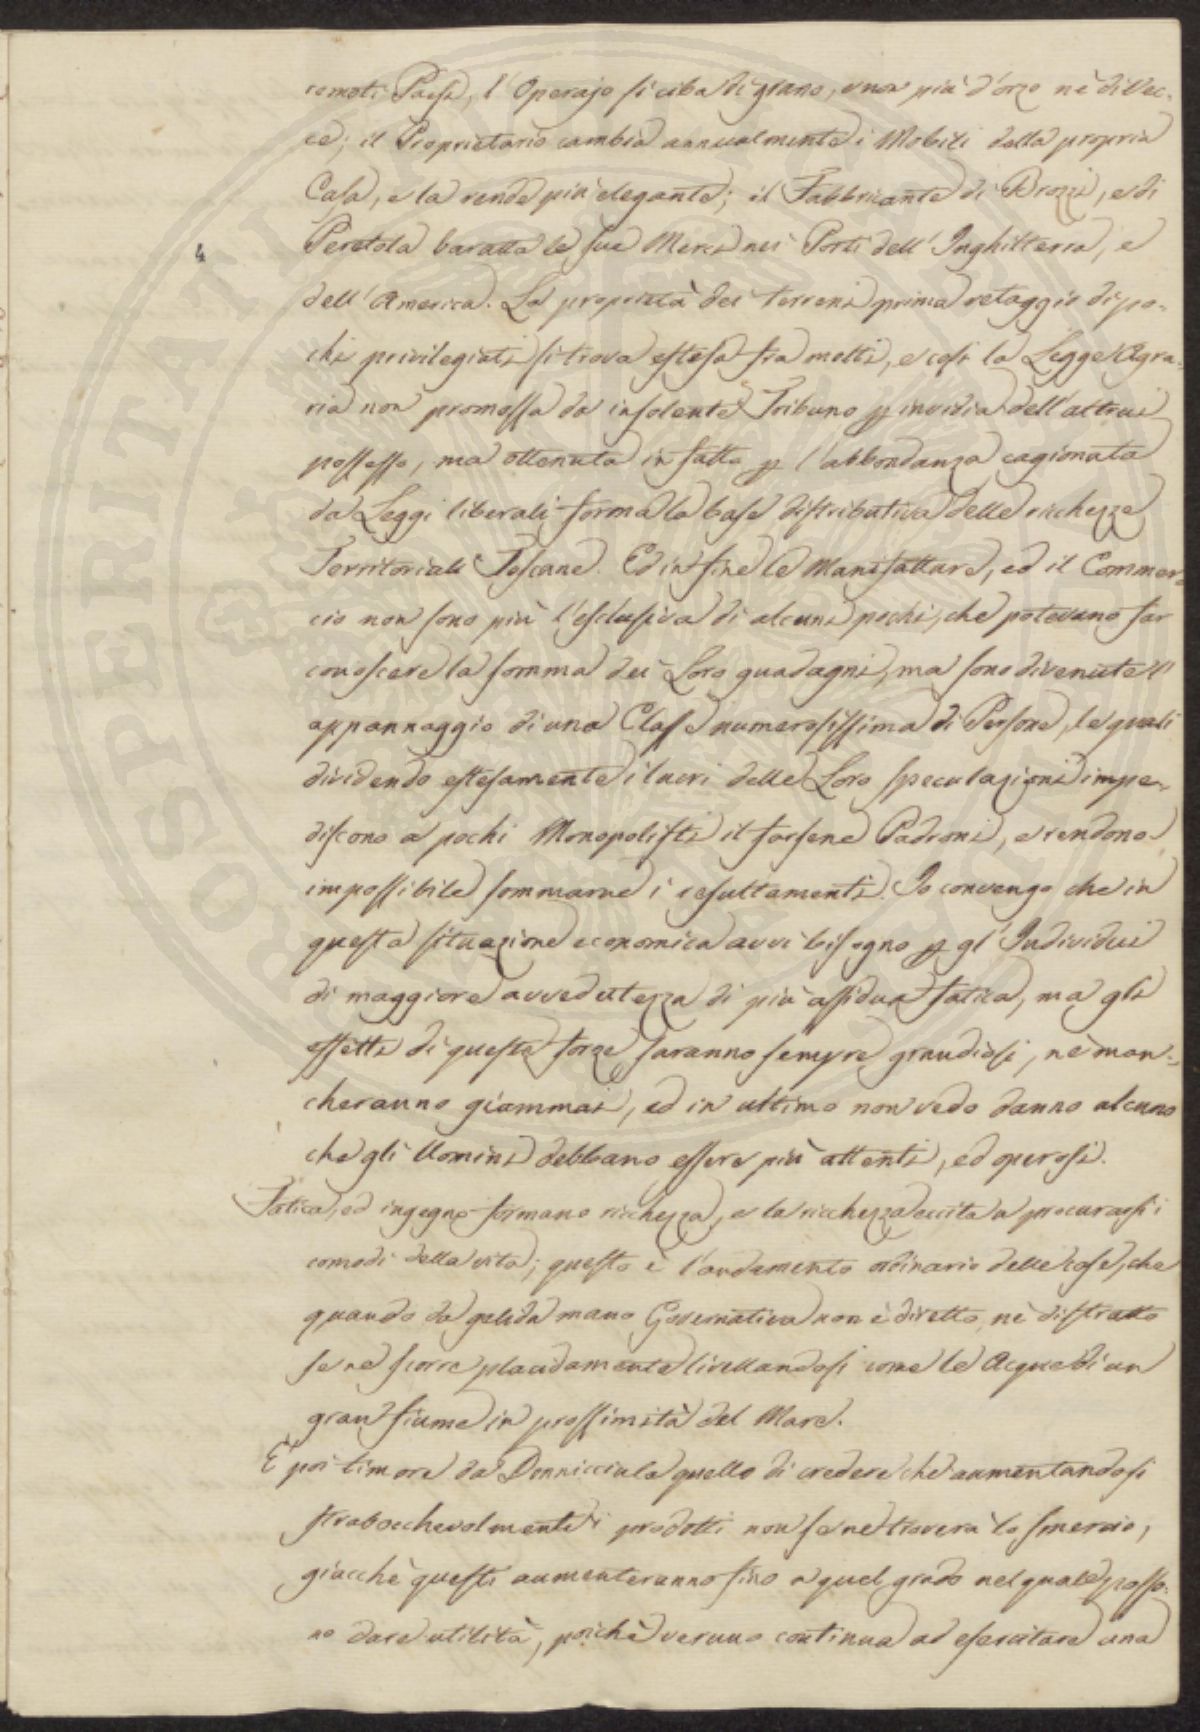 remoti Paesi, l'Operajo si ciba di grano, e non più d'orzo nè di Vec-
ce; il Proprietario cambia annualmente i Mobili della propria
Casa, e la rende più elegante; il Fabbricante di Brozzi, e di
Peretola baratta le sue Merci nei Porti dell'Inghilterra, e
4
dell'America. La proprietà dei terreni prima retaggio di po-
chi privilegiati si trova estesa fra molti, e così la Legge Agra-
ria non promossa da insolente Tribuno p invidia dell'altrui
possesso, ma ottenuta in fatto p l'abbondanza cagionata
da Leggi liberali forma la base distributiva delle richezze
Territoriali Toscane. Ed in fine le Manifatture, ed il Commer-
cio non sono più l'esclusiva di alcuni pochi, che potevano far
conoscere la somma dei Loro guadagni, ma sono divenute l'
appannaggio di una Classe numerosissima di Persone, le quali
dividendo estesamente i lucri delle Loro speculazioni impe-
discono a pochi Monopolisti il farsene Padroni, e rendono
impossibile sommarne i resultamenti. Io convengo che in
questa situazione economica avvi bisogno p gl'Individui
di maggiore avvedutezza di più assidua fatica, ma gli
effetti di queste forze saranno sempre grandiosi, nè man-
cheranno giammai, ed in ultimo non vedo danno alcuno
che gli Uomini debbano essere più attenti, ed operosi.
Fatica, ed ingegno formano ricchezza, e la ricchezza eccita a procurarsi i
comodi della vita; questo è l'andamento ordinario delle cose, che
quando da gelida mano Governativa non è diretto, nè distratto
se ne scorre placidamente livellandosi come le Acque di un
gran fiume in prossimità del Mare.
E' poi timore da Donnicciola quello di credere che aumentandosi
strabocchevolmente i prodotti non se ne troverà lo smercio,
giacchè questi aumenteranno fino a quel grado nel quale posso-
no dare utilità, poichè veruno continua ad esercitare una